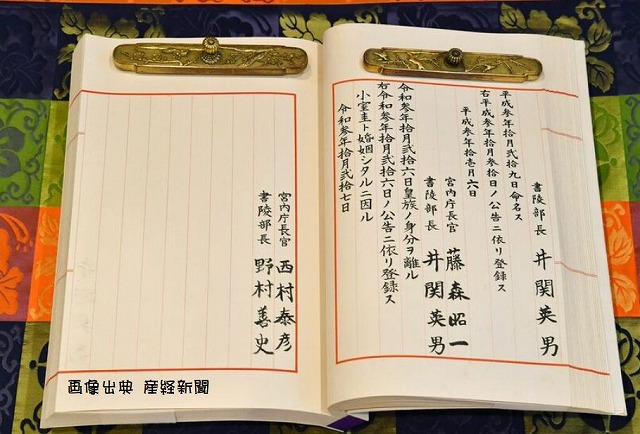 書陵部長 井関英男
平成参年拾月弐拾九日命名ス
右平成参年拾月参拾日ノ公告ニ依リ登録ス
平成参年拾壱月六日
宮内庁長官 藤森昭一
書陵部長 井関英男
令和参年拾月弐拾六日皇族ノ身分ヲ離ル
右令和参年拾月弐拾六日ノ公告ニ依リ登録ス
小室圭ト婚姻シタルニ因ル
令和参年拾月弐拾七日
宮内庁長官 西村泰彦
書陵部長 野村善史
画像出典 産経新聞